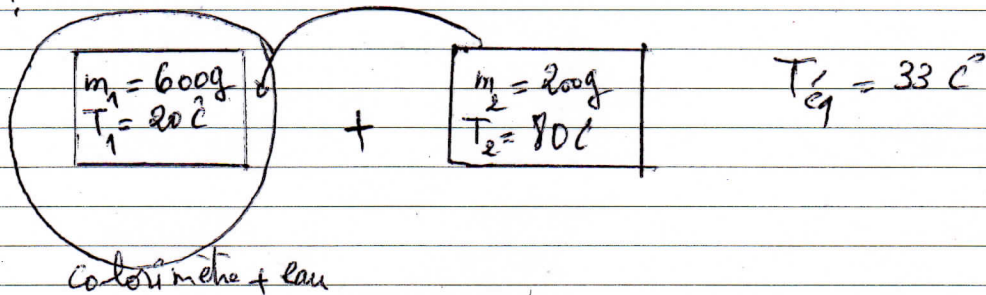 m₁ = 600g
T₁ = 20 C°
+
m₂ = 200g
T₂ = 80 C
T'éq = 33 C°
calorimètre + eau